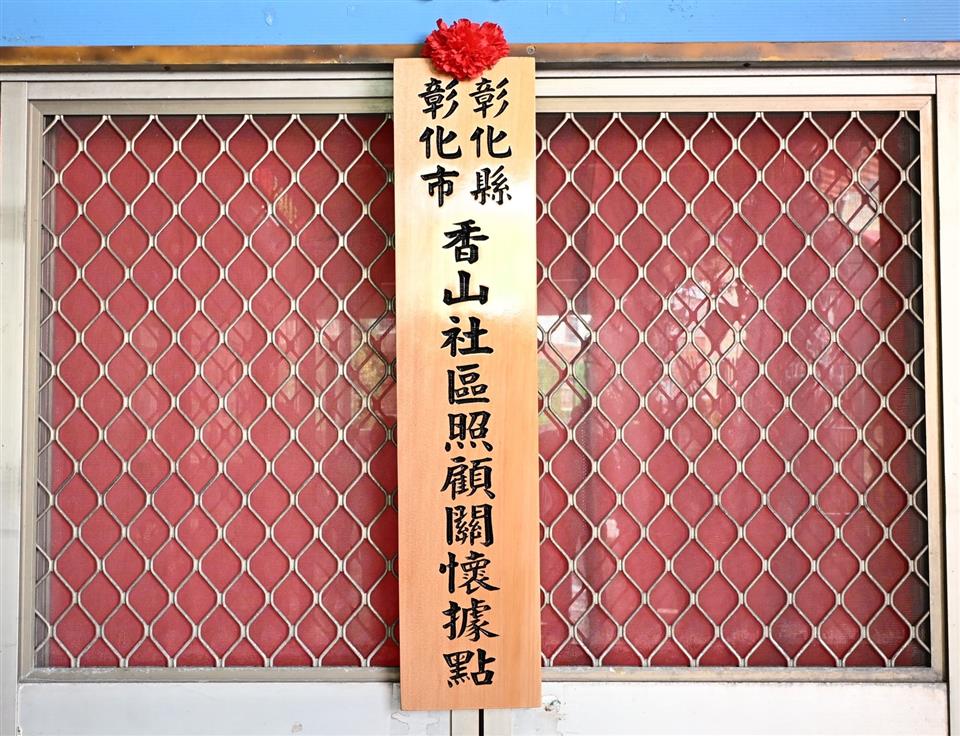 彰化縣
彰化市
香山社區照顧關懷據點